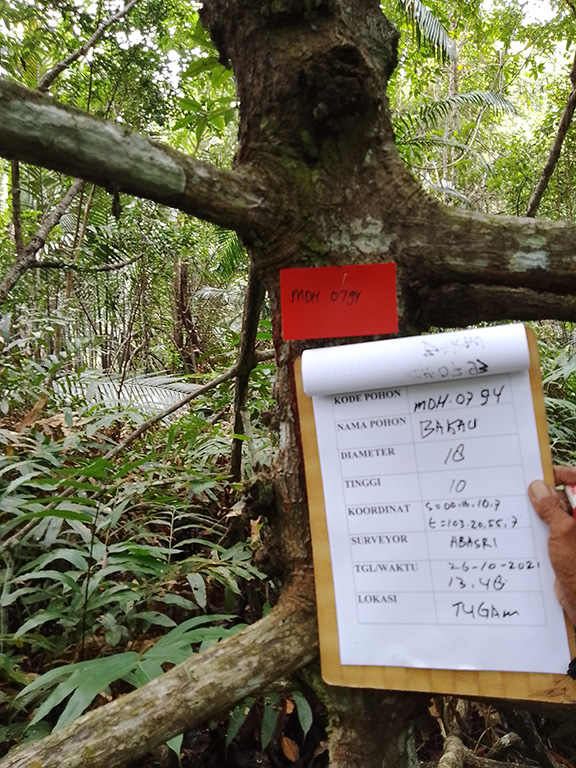 MDH 0794
KODE POHON MDH.0794
NAMA POHON BAKAU
DIAMETER 18
TINGGI 10
KOORDINAT S=00.16.10.7
E=103.20,55.7
SURVEYOR ABASRI
TGL/WAKTU 26-10-2021
13.48
LOKASI TUGAM